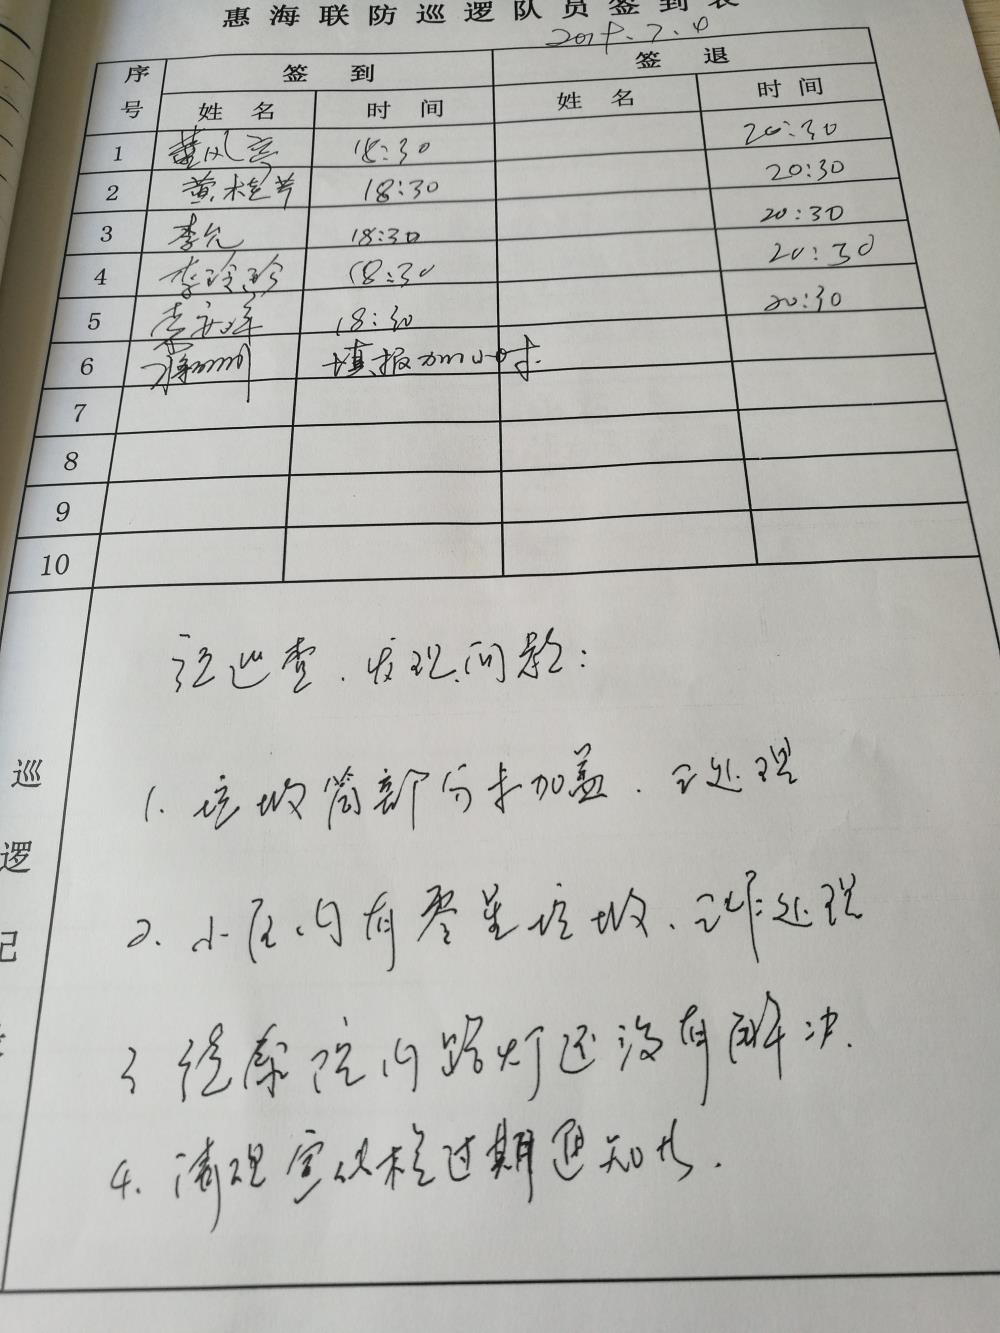 惠海联防巡逻队员签到表
2019.7.4
序号 签到 签退
姓名 时间 姓名 时间
1 18:30 20:30
2 黄桂芹 18:30 20:30
3 李允 18:30 20:30
4 李玲珍 18:30 20:30
5 18:30 20:30
6 填报加小时.
7
8
9
10
巡逻记
经巡查.发现问题:
1.垃圾筒部分未加盖.已处理
2.小区内有零星垃圾.已作处理
3 院内路灯还没有解决.
4.清理宣传栏过期通知书.